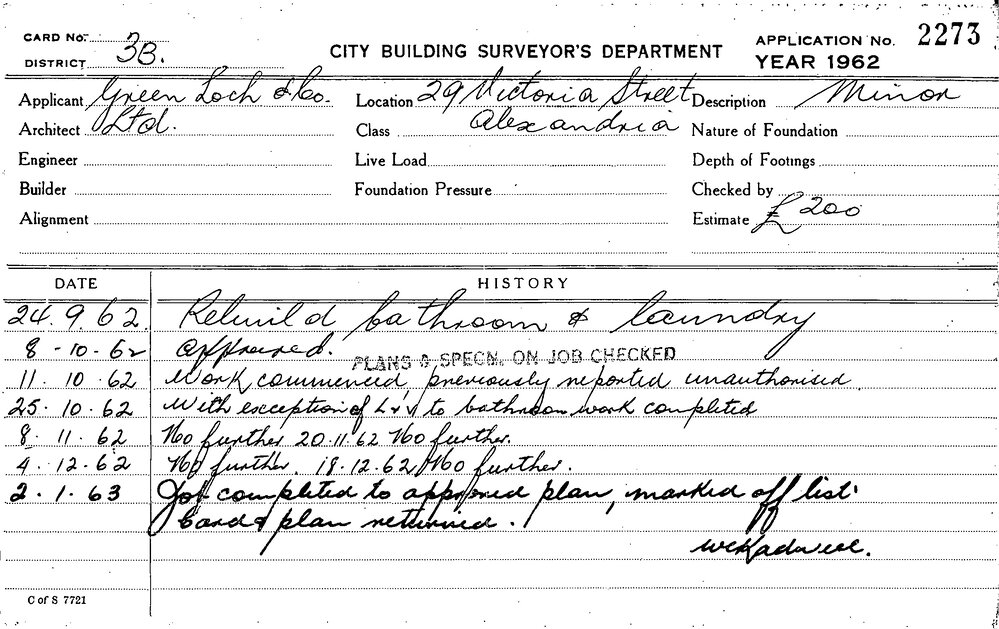 CARD No. 3B.
DISTRICT
CITY BUILDING SURVEYOR'S DEPARTMENT
APPLICATION No. 2273
YEAR 1962
Applicant Green Loch & Co. Location 29 Victoria Street Description Minor
Architect Ltd. Class Alexandria Nature of Foundation
Engineer Live Load Depth of Footings
Builder Foundation Pressure Checked by
Alignment Estimate £200
DATE HISTORY
24.9.62. Rebuild bathroom & laundry
8-10-62 Approved. PLANS & SPECN. ON JOB CHECKED
11.10.62 Work commenced, previously reported unauthorised.
25.10.62 With exception of L & V to bathroom work completed
8.11.62 No further 20.11.62 No further.
4.12.62 No further. 18.12.62 No further.
2.1.63 Job completed to approved plan, marked off list.
Card & plan returned.
C of S 7721